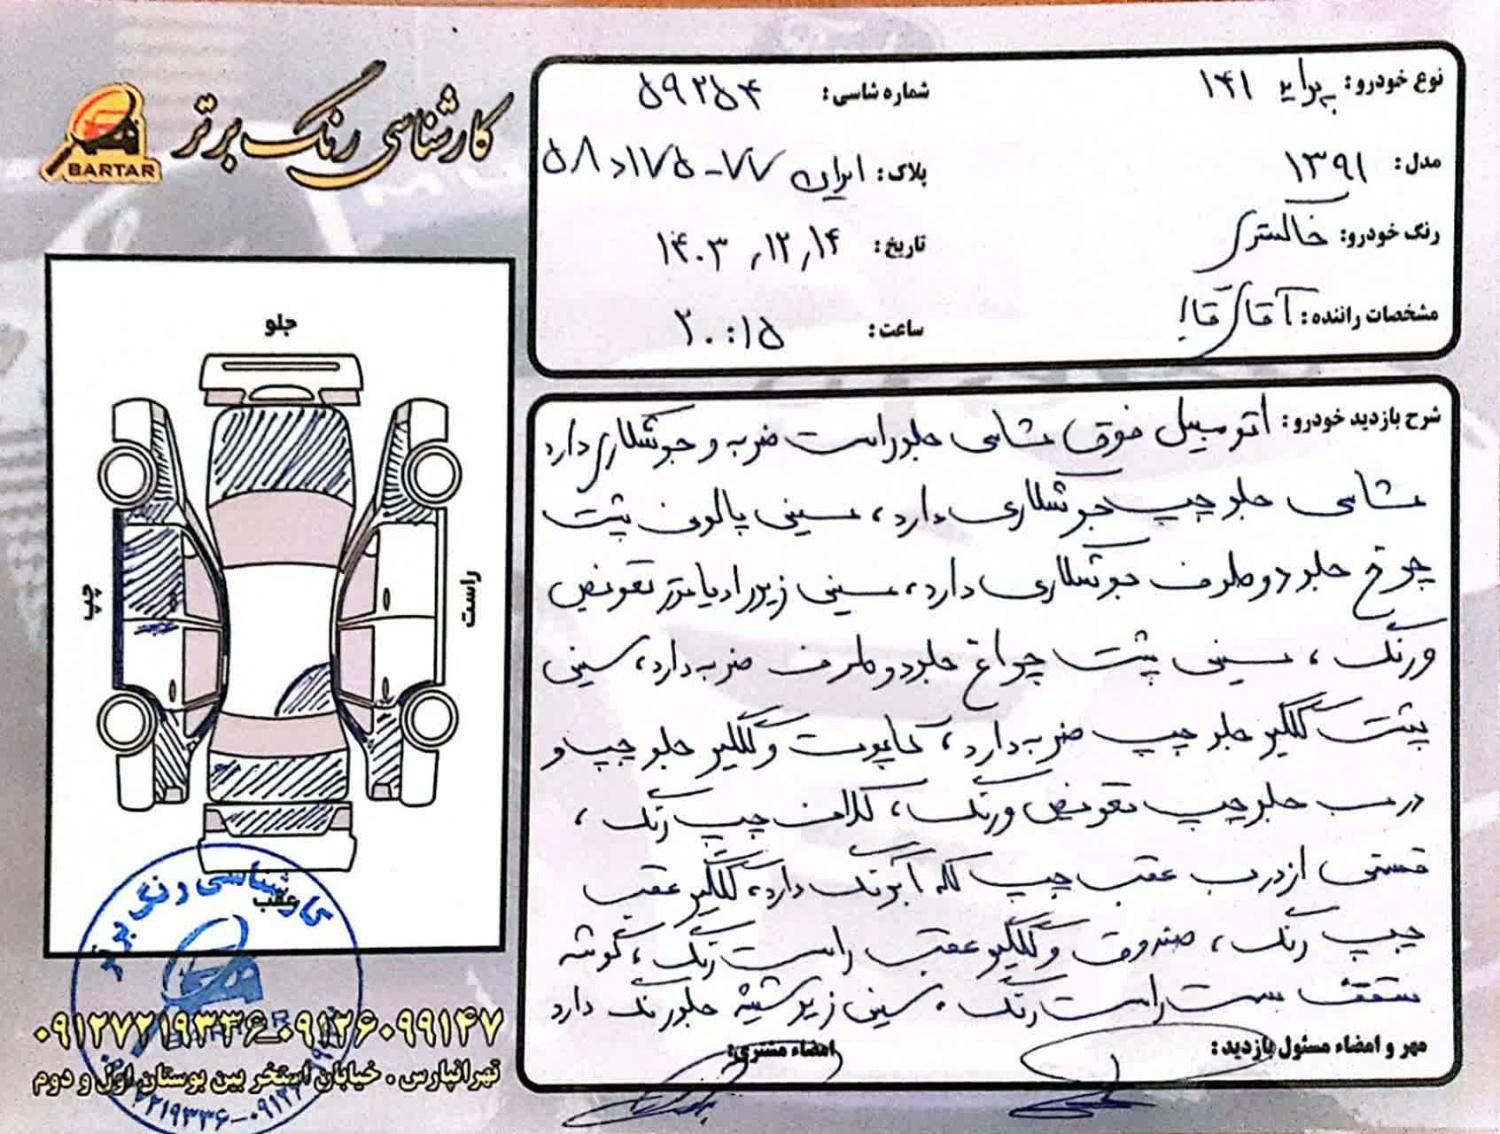 کارشناسی رنگ برتر
BARTAR
نوع خودرو: پراید ۱۴۱
شماره شاسی: ۵۹۲۵۴
مدل: ۱۳۹۱
پلاک: ایران ۷۷ - ۱۷۵ د ۵۸
رنگ خودرو: خاکستری
تاریخ: ۱۴۰۳,۱۲,۱۴
مشخصات راننده: آقای
ساعت: ۲۰:۱۵
جلو
چپ
راست
عقب
شرح بازدید خودرو: اتومبیل فوق شاسی جلو راست ضربه و جوشکاری دارد
شاسی جلو چپ جوشکاری دارد، سینی پالون پشت
چرخ جلو دوطرف جوشکاری دارد، سینی زیر رادیاتور تعویض
و رنگ، سینی پشت چراغ جلو دو طرف ضربه دارد، سینی
پشت گلگیر جلو چپ ضربه دارد، کاپوت و گلگیر جلو چپ و
درب جلو چپ تعویض و رنگ، کلاف چپ رنگ،
قسمتی از درب عقب چپ لکه آبرنگ دارد، گلگیر عقب
چپ رنگ، صندوق و گلگیر عقب راست رنگ، گوشه
سقف سمت راست رنگ. سینی زیر شیشه جلو رنگ دارد
مهر و امضاء مسئول بازدید:
امضاء مشتری:
کارشناسی رنگ برتر
۰۹۱۲۷۲۱۹۳۳۶-۰۹۱۲۶۰۹۹۱۴۷
تهرانپارس . خیابان استخر بین بوستان اول و دوم